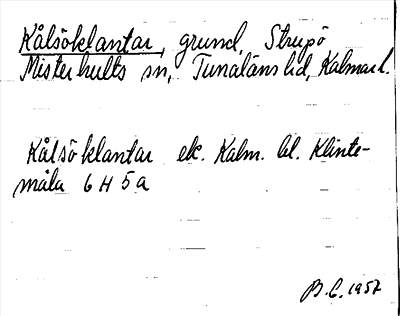 Kålsöklantar, grund, Strupö
Misterhults sn, Tunaläns hd, Kalmar l.
Kålsöklantar ek. Kalm. bl. Klinte-
måla 6 H 5 a
B.C. 1957